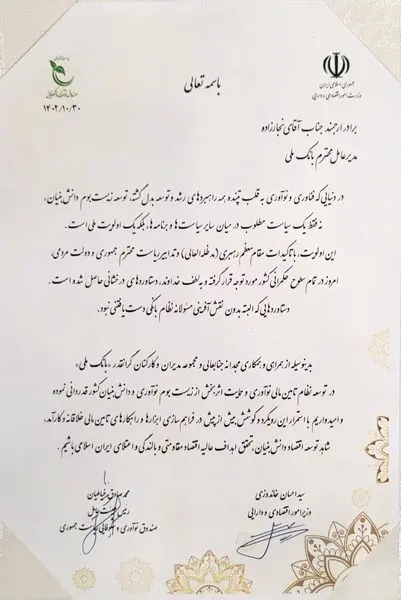 باسمه تعالی
جمهوری اسلامی ایران
وزارت امور اقتصادی و دارایی
۱۴۰۲/۱۰/۳۰
برادر ارجمند جناب آقای نجارزاده
مدیرعامل محترم بانک ملی
در دنیایی که فناوری و نوآوری به قلب تپنده همه راهبردهای رشد و توسعه بدل گشته، توسعه زیست‌بوم دانش‌بنیان،
نه فقط یک سیاست مطلوب در میان سایر سیاست‌ها و برنامه‌ها، بلکه یک اولویت ملی است.
این اولویت، با تأکیدات مقام معظم رهبری (مدظله‌العالی) و تدابیر ریاست محترم جمهوری و دولت مردمی،
امروز در تمام سطوح حکمرانی کشور مورد توجه قرار گرفته و به لطف خداوند، دستاوردهای درخشانی حاصل شده است.
دستاوردهایی که البته بدون نقش آفرینی مسئولانه نظام بانکی دست یافتنی نبود.
بدینوسیله از همراهی و همکاری مجدانه جنابعالی و مجموعه مدیران و کارکنان گرانقدر «بانک ملی»
در توسعه نظام تامین مالی نوآوری و حمایت اثربخش از زیست بوم نوآوری و دانش‌بنیان کشور قدردانی نموده
و امیدواریم با استمرار این رویکرد و کوشش بیش از پیش در فراهم سازی ابزارها و راهکارهای تامین مالی خلاقانه و کارآمد،
شاهد توسعه اقتصاد دانش‌بنیان، تحقق اهداف عالیه اقتصاد مقاومتی و بالندگی و اعتلای ایران اسلامی باشیم.
سید احسان خاندوزی
وزیر امور اقتصادی و دارایی
محمدصادق خیاطیان
صندوق نوآوری و شکوفایی ریاست جمهوری